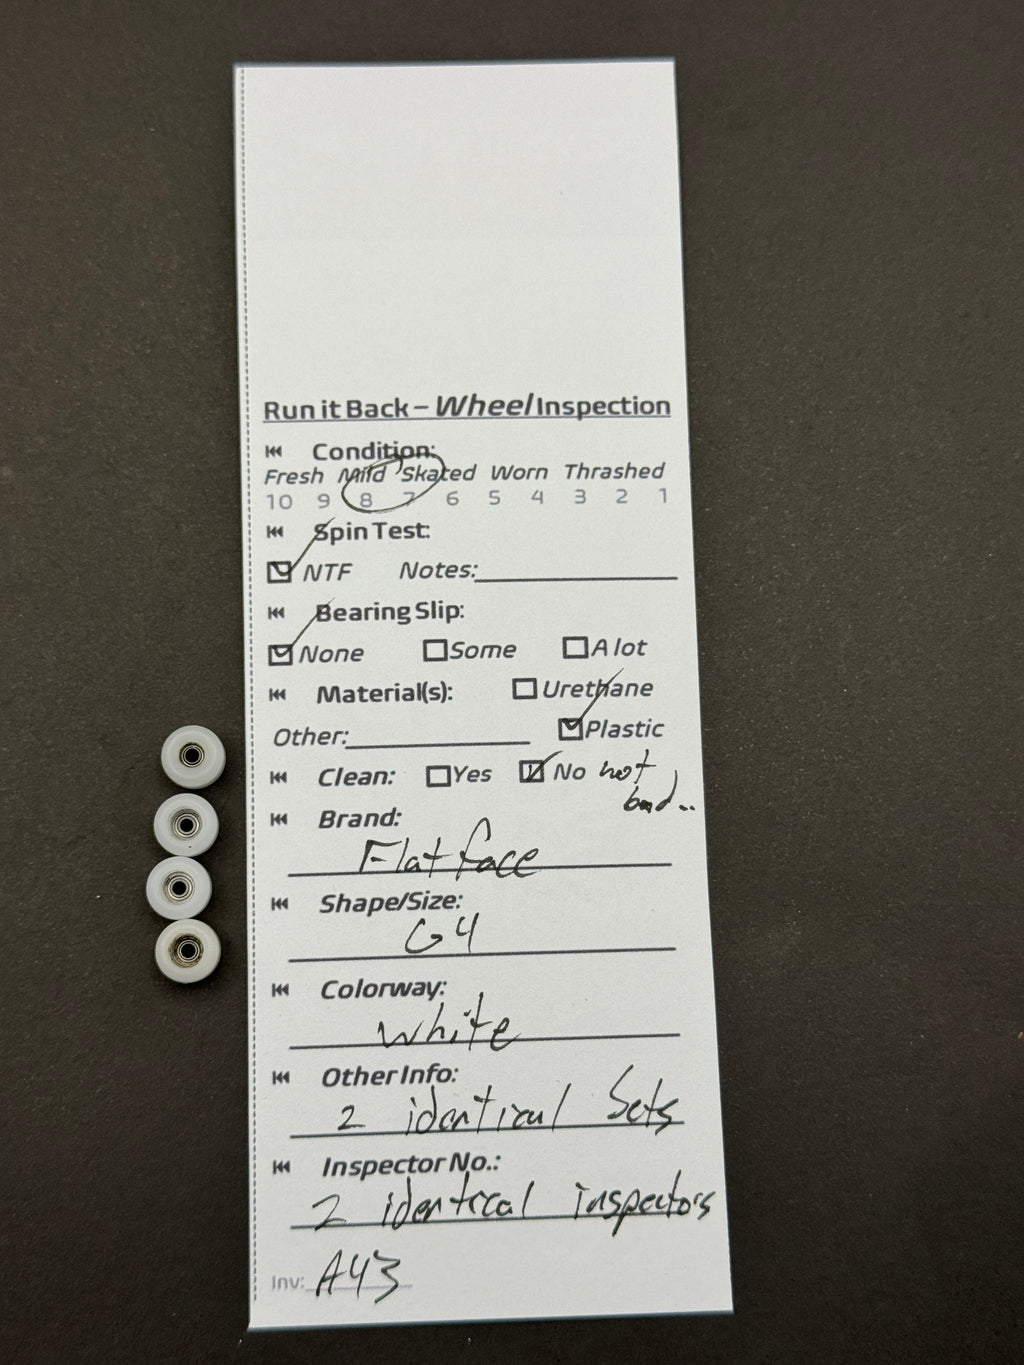 Run it Back – Wheel Inspection
Condition:
Fresh Mild Skated Worn Thrashed
10 9 8 7 6 5 4 3 2 1
Spin Test:
NTF Notes:
Bearing Slip:
None Some A lot
Material(s): Urethane
Other: Plastic
Clean: Yes No not
bad..
Brand:
Flatface
Shape/Size:
G4
Colorway:
White
Other Info:
2 identical Sets
Inspector No.:
2 identical inspectors
Inv: A43